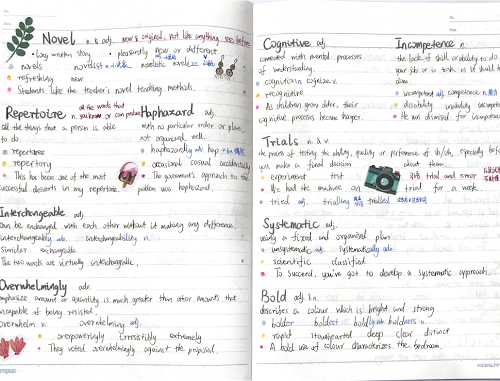 Novel n & adj. new & original, not like anything seen before
• Long, written story • pleasantly new or different
novels novelist novelistic novelize v
refreshing new
Students like the teacher's novel teaching methods.
Repertoire n all the words that you know or can produce
all the things that a person is able
to do
repertoires
repertory
This has been one of the most
successful desserts in my repertoire.
Haphazard adj.
with no particular order or plan,
not organized well.
haphazardly ad. hap
occasional casual accidentally
The government's approach to the
problem was haphazard.
Interchangeable adj.
can be exchanged with each other without it making any difference.
interchangeably adv. interchangeability n.
similar exchangeable
The two words are virtually interchangeable.
Overwhelmingly adv.
emphasize amount or quantity is much greater than other amounts that
incapable of being resisted.
overwhelm v. overwhelming adj.
overpoweringly irresistibly extremely
They voted overwhelmingly against the proposal.
Cognitive adj.
connected with mental processes
of understanding
cognition n cognize v.
recognitive
As children grow older, their
cognitive process become sharper.
Incompetence n
the lack of skill or ability to do
your job or a task as it should be
done
incompetent adj. competence n.
disability
He was dismissed for
Trials n & v
the process of testing the ability, quality or performance of sb/sth, especially before
you make a final decision about them.
experiment test with trial and error
We had the machine on trial for a week.
tried adj. trialling trialled
Systematic adj.
using a fixed and organised plan
unsystematic adj. systematically adv
scientific classified
To succeed, you've got to develop a systematic approach.
Bold adj. & n
describes a colour which is bright and strong
bolder boldest boldly adv. boldness n
deep clear distinct
A bold use of colour characterizes the bedroom.